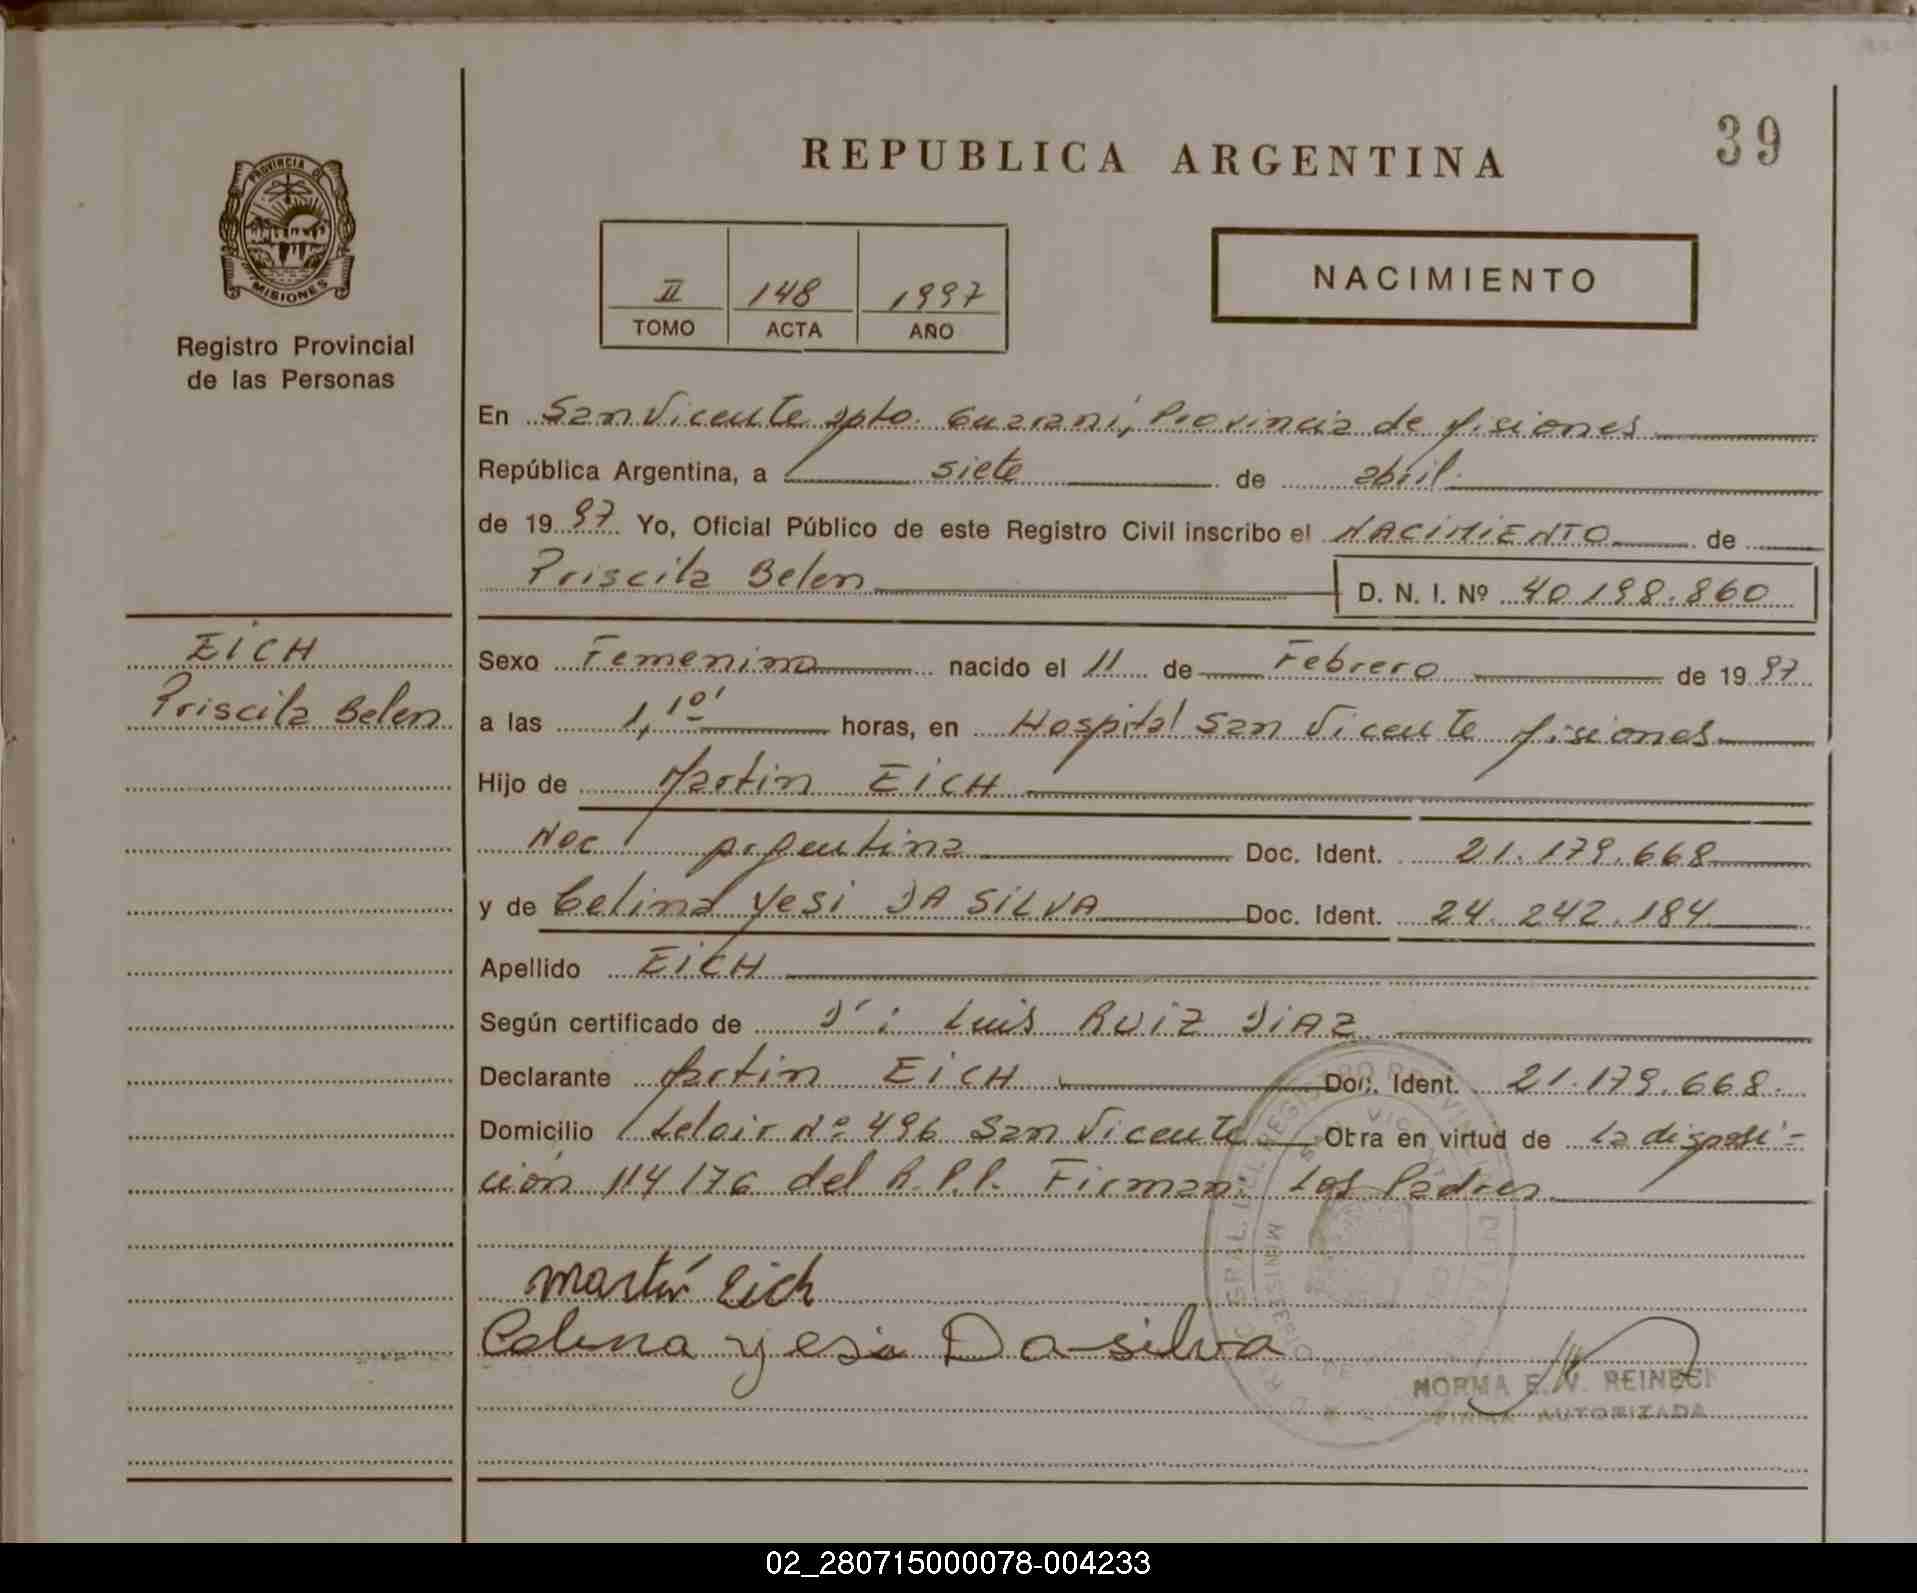 39
REPUBLICA ARGENTINA
PROVINCIA DE
MISIONES
Registro Provincial
de las Personas
II 148 1997
TOMO ACTA AÑO
NACIMIENTO
En San Vicente Dpto. Guaraní, Provincia de Misiones
República Argentina, a siete de abril
de 1997 Yo, Oficial Público de este Registro Civil inscribo el NACIMIENTO de
Priscila Belen D. N. I. Nº 40.198.860
EICH
Priscila Belen
Sexo Femenino nacido el 11 de Febrero de 1997
a las 1,10' horas, en Hospital San Vicente Misiones
Hijo de Martin EICH
Nac Argentina Doc. Ident. 21.179.668
y de Celina Yesi DA SILVA Doc. Ident. 24.242.184
Apellido EICH
Según certificado de Luis RUIZ DIAZ
Declarante Martin EICH Doc. Ident. 21.179.668.
Domicilio Leloir Nº 496 San Vicente Otra en virtud de la disposi-
ción 114/76 del R.P.P. Firman: Los Padres
Martín Eich
Celina yesi Da silva
NORMA E. V. REINECK
FIRMA AUTORIZADA
02_280715000078-004233